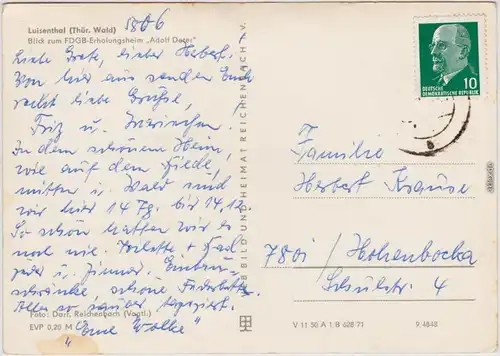 Luisenthal (Thür. Wald)
Blick zum FDGB-Erholungsheim „Adolf Deter"
5806
Liebe Grete, lieber Herbert.
Von hier aus senden Euch
recht liebe Grüße,
Fritz u.
In dem schönen Heim,
wie auf dem Bilde,
mitten i. Wald sind
wir hier 14 Tg. bis 14.12.
So schön hatten wir es
noch nie. Toilette + Bad
jedes i. Zimmer. Einbau-
schränke, schöne Federbetten
Alles so sauber tapeziert.
"Eine Wolke"
Foto: Darr, Reichenbach (Vogtl.)
EVP 0,20 M
BILD UND HEIMAT REICHENBACH I. V.
10
DEUTSCHE
DEMOKRATISCHE REPUBLIK
Familie
Herbert Krause
7801 / Hohenbocka
Schulstr. 4
V 11 50 A 1 B 628/71
9/4848